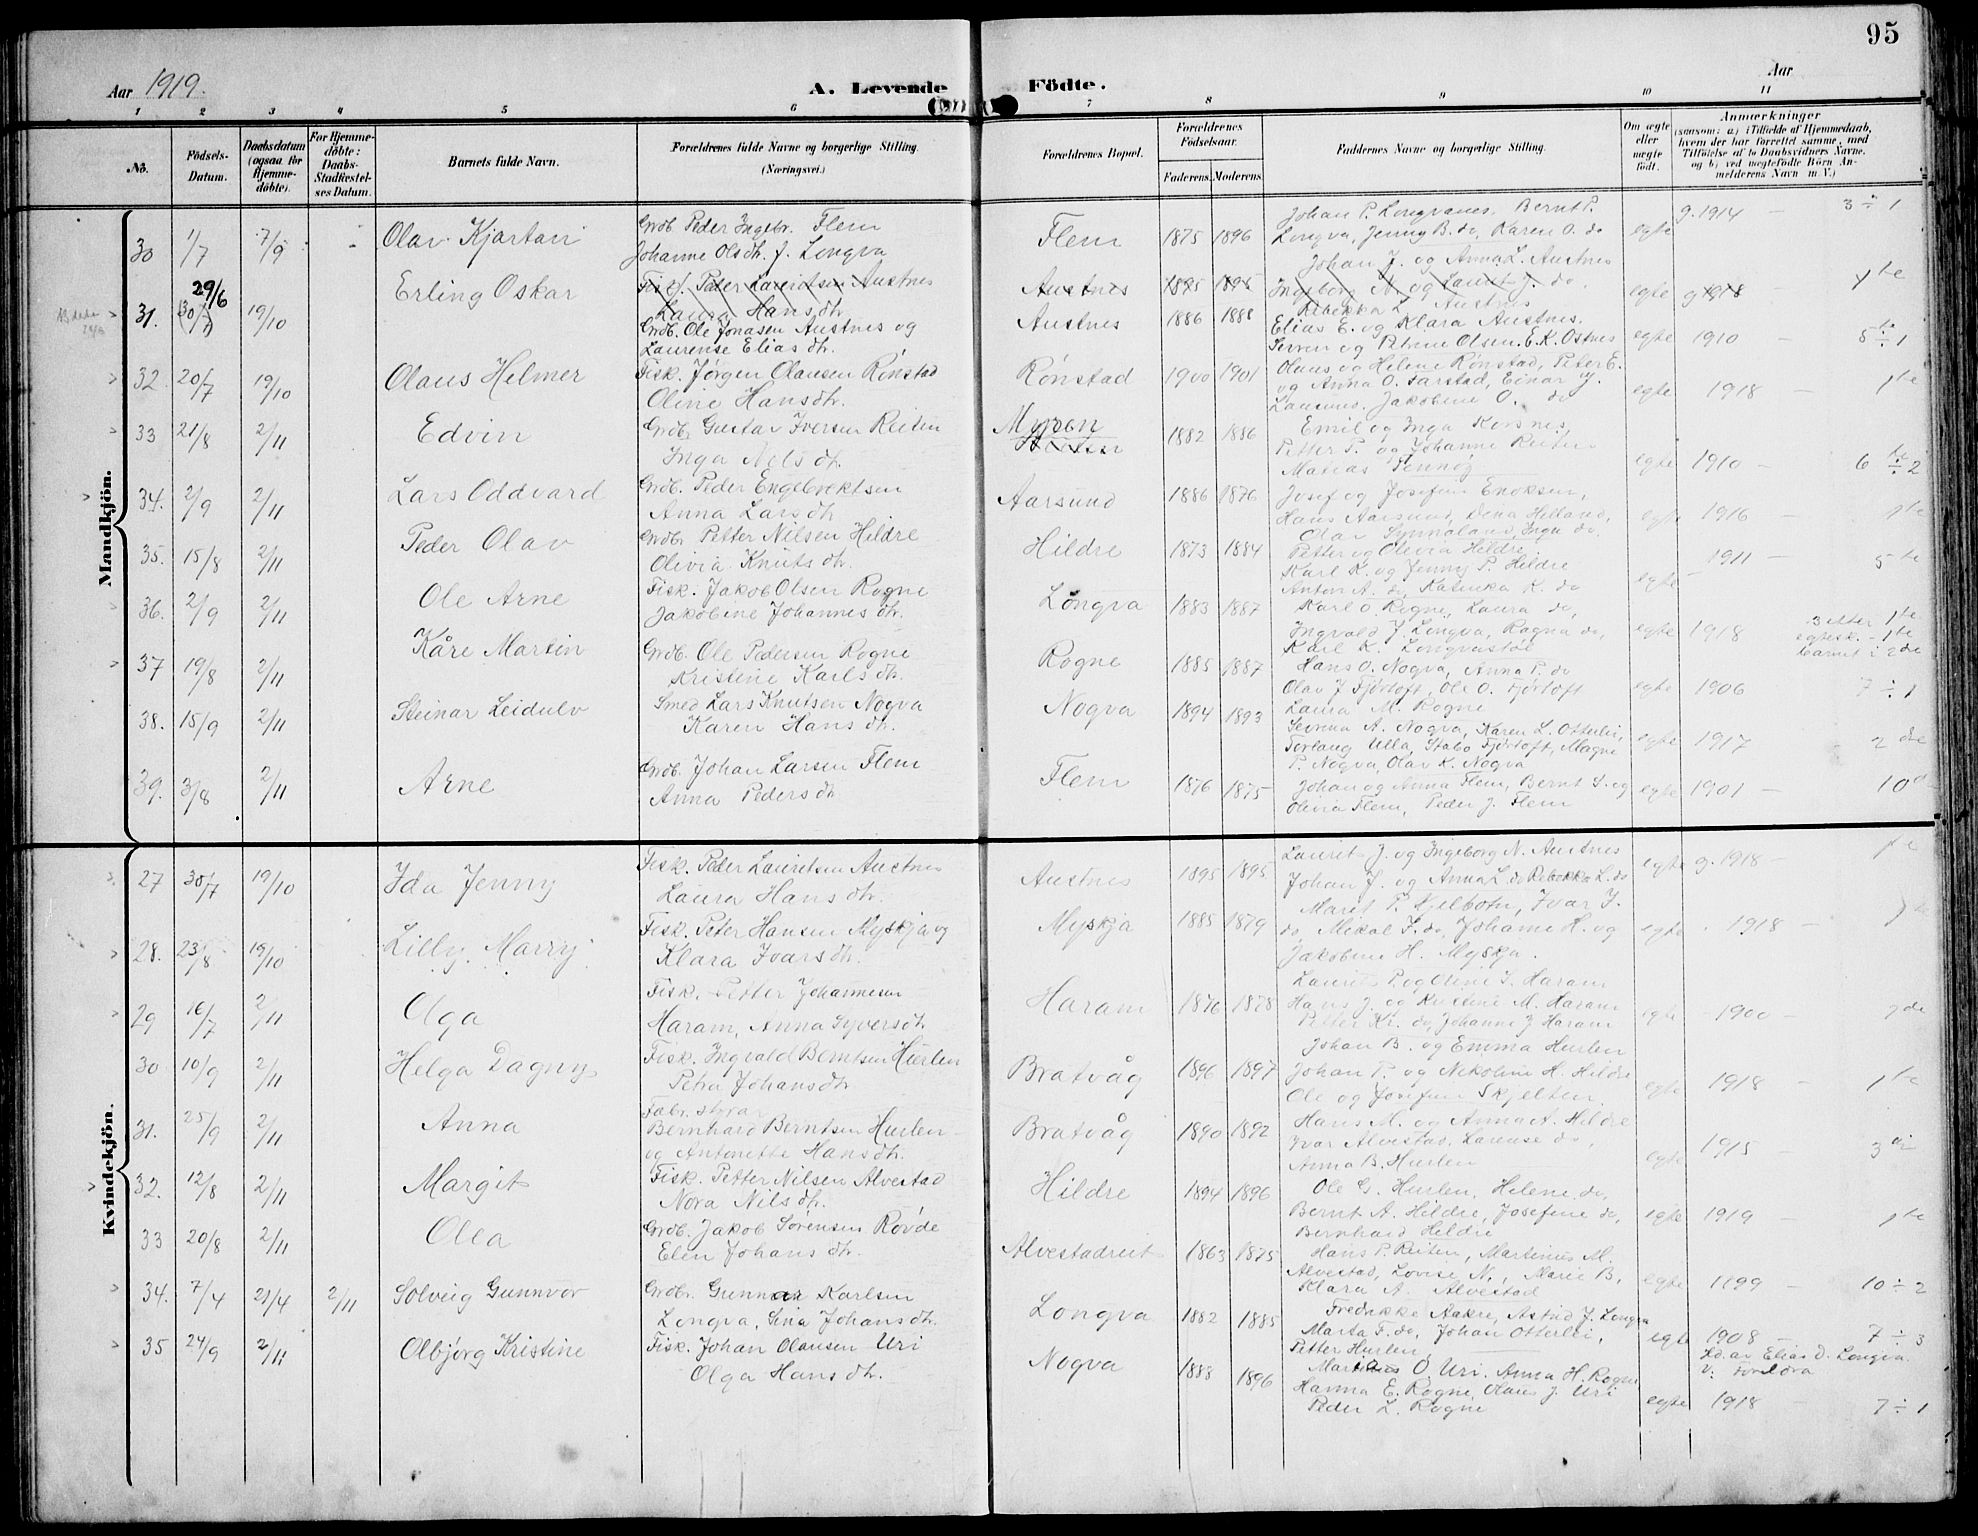 95
Aar 1919.
A. Levende Födte.
Aar
1 2 3 4 5 6 7 8 9 10 11
No. Födsels-Datum. Daabsdatum (ogsaa for Hjemmedöbte). For Hjemmedöbte: Daabs-Stadfæstelses Datum. Barnets fulde Navn. Forældrenes fulde Navne og borgerlige Stilling. (Næringsvei.) Forældrenes Bopæl. Forældrenes Födselsaar. Faderens. Moderens. Faddernes Navne og borgerlige Stilling. Om ægte eller uægte födt. Anmærkninger (saasom: a.) i Tilfælde af Hjemmedaab, hvem der har forrettet samme, med Tilföielse af to Daabsvidners Navne. og b.) ved uægtefödte Börn Anmelderens Navn m. V.)
Mandkjön.
30 1/7 7/9 Olav Kjartan Grdb. Peder Ingebr. Flem
Johanne Olsdtr. f. Longva Flem 1875 1896 Johan P. Longvanes, Bernt P.
Longva, Jenny B. do, Karen O. do egte g. 1914 - 3 ÷ 1
31. 29/6 (30/7) 19/10 Erling Oskar Fisk. Peder Lauritsen Austnes
Laura Hansdtr. Austnes 1895 1895 Johan J. og Anna L. Austnes
Ingeborg N. og Laurits J. do.
Rebekka L. Austnes egte g 1918 - 1te
Grdb. Ole Jonasen Austnes og
Laurense Eliasdtr. Austnes 1886 1888 Elias E. og Klara Austnes.
Severin og Petrine Olsen. E. K. Ostnes egte 1910 - 5te ÷ 1
32. 20/7 19/10 Olaus Helmer Fisk. Jörgen Olausen Rönstad
Oline Hansdtr. Rönstad 1900 1901 Olaus og Helene Rönstad, Peter E.
og Anna O. Farstad, Einar J.
Jakobine O. do egte 1918 - 1te
33 21/8 2/11 Edvin Grdb. Gustav Iversen Reiten
Inga Nelsdtr. Myren
Reiten 1882 1886 Emil og Inga Korsnes,
Petter P. og Johanne Reiten
Matias Tennöy egte 1910 - 6te ÷ 2
34. 2/9 2/11 Lars Oddvard Grdb. Peder Engebrektsen
Anna Larsdtr. Aarsund 1886 1876 Josef og Josefine Enoksen,
Hans Aarsund, Dena Helland,
Olav Synnaland, Inga do. egte 1916 - 1te
35. 15/8 2/11 Peder Olav Grdb. Petter Nilsen Hildre
Olivia Knutsdtr. Hildre 1873 1884 Petter og Olevia Hildre,
Karl K. og Jenny P. Hildre
Anton A. do, Katinka K. do egte 1911 - 5te
36. 2/9 2/11 Ole Arne Fisk. Jakob Olsen Rogne
Jakobine Johannesdtr. Longva 1883 1887 Karl O. Rogne, Laura do,
Ingvald J. Longva, Ragna do,
Karl K. Longvastøl egte 1918 3 etter 1te
egtesk. - 1te
barnet i 2de
37 19/8 2/11 Kåre Martin Grdb. Ole Pedersen Rogne
Kristine Karlsdtr. Rogne 1885 1887 Hans O. Nogva, Anna P. do
Olav J. Fjörtoft, Ole O. Fjörtoft
Laura M. Rogne egte 1906 7 ÷ 1
38. 15/9 2/11 Steinar Leidulv Smed Lars Knutsen Nogva
Karen Hansdtr. Nogva 1894 1893 Severina A. Nogva, Karen L. Otterlei,
Torlaug Ulla, Stabo Fjörtoft, Magne
P. Nogva, Olav K. Nogva egte 1917 - 2dre
39. 3/8 2/11 Arne Grdb. Johan Larsen Flem
Anna Pedersdtr Flem 1876 1875 Johan og Anna Flem, Bernt S. og
Olivia Flem, Peder J. Flem egte 1901 - 10d
Kvindekjön.
27 30/7 19/10 Ida Jenny Fisk. Peder Lauritsen Austnes
Laura Hansdtr. Austnes 1895 1895 Laurits J. og Ingeborg N. Austnes
Johan J. og Anna L. do Rebekka L. do egte g. 1918 - 1te
28. 23/8 19/10 Lilly Marry Fisk. Peter Hansen Myskja og
Klara Ivarsdtr. Myskja 1885 1879 Marit P. Kjelbotn, Ivar J.
do, Mikal J. do, Johanne H. og
Jakobine H. Myskja. egte 1918 - 1te
29 16/7 2/11 Olga Fisk. Petter Johannesen
Haram, Anna Syversdtr. Haram 1876 1878 Laurits P. og Oline S. Haram
Hans J. og Kristine M. Haram
Petter Kr. do, Johanne J. Haram egte 1900 - 9de
30 10/9 2/11 Helga Dagny Fisk. Ingvald Berntsen Hurlen
Petra Johansdtr. Bratvåg 1896 1897 Johan B. og Emma Hurlen
Johan P. og Nikoline H. Hildre
Ole og Josefine Skjelten. egte 1918 - 1te
31. 25/9 2/11 Anna Fabr. styrar
Bernhard Berntsen Hurlen
og Antonette Hansdtr. Bratvåg 1890 1892 Hans M. og Anna A. Hildre
Ivar Alvestad, Larense do
Anna B. Hurlen egte 1915 - 3die
32. 12/8 2/11 Margit Fisk. Petter Nilsen Alvestad
Nora Nilsdtr. Hildre 1894 1896 Ole G. Hurlen, Helene do,
Bernt A. Hildre, Josefine do,
Bernhard Hildre egte 1919 - 1te
33 20/8 2/11 Olea Grdb. Jakob Sörensen Rövde
Elen Johansdtr. Alvestadreit 1863 1875 Hans P. Reiten, Martinus M.
Alvestad, Lovise N., Marie B,
Klara A. Alvestad egte 1899 - 10 ÷ 2
34. 7/4 21/4 2/11 Solveig Gunnvor Grdbr. Gunnar Karlsen
Longva, Gina Johansdtr. Longva 1882 1885 Fredrikke Aakre, Astrid J. Longva
Marta F. do, Johan Otterlei,
Petter Hurlen egte 1908 - 7 ÷ 3
hd. av Elias D. Longva
V: Foreldra
35 24/9 2/11 Olbjörg Kristine Fisk. Johan Olausen Uri
Olga Hansdtr. Nogva 1888 1896 O. Uri, Anna H. Rogne
Hanna E. Rogne, Olaus J. Uri
Peder L. Rogne egte 1918 - 7 ÷ 1